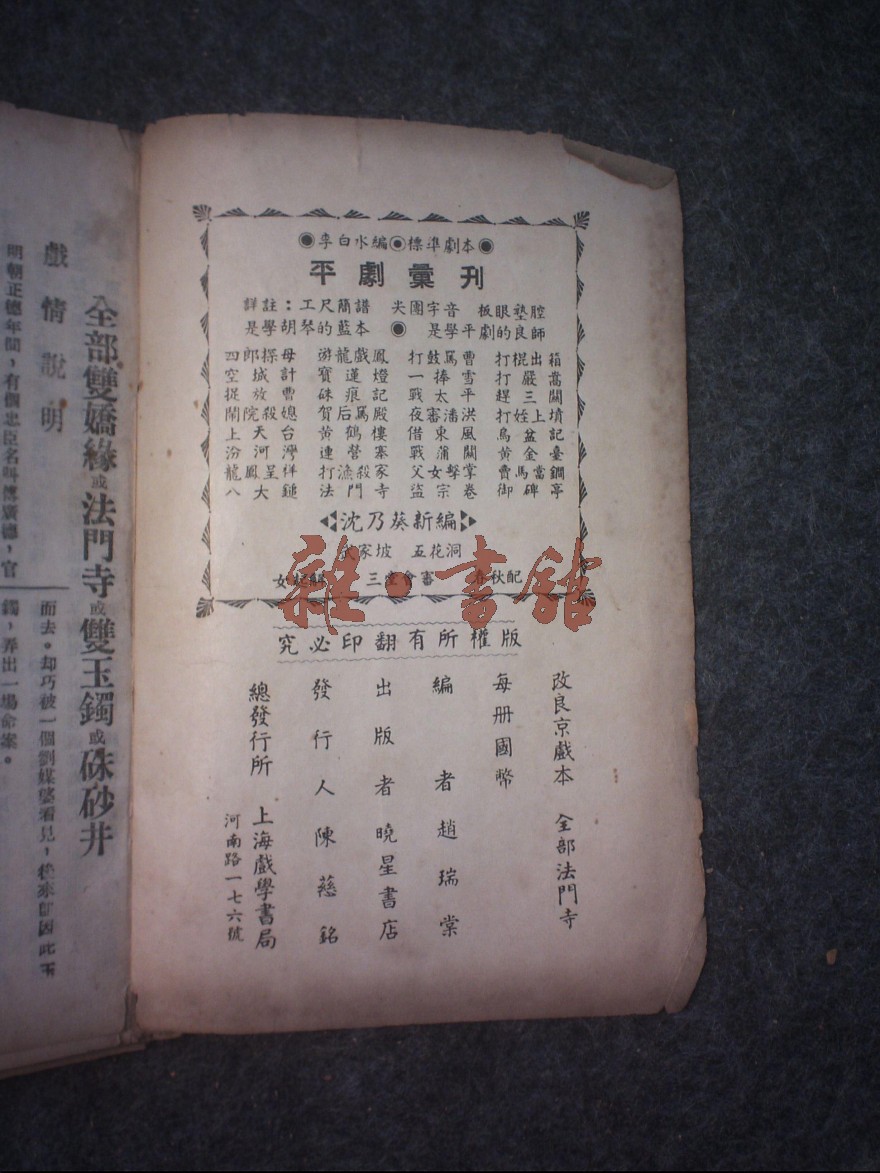 ◉李白水編◉標準劇本◉
平劇彙刊
詳註：工尺簡譜 尖團字音 板眼墊腔
是學胡琴的藍本 ◉ 是學平劇的良師
四郎探母 游龍戲鳳 打鼓罵曹 打棍出箱
空城計 寶蓮燈 一捧雪 打嚴嵩
捉放曹 硃痕記 戰太平 趕三關
鬧院殺媳 賀后罵殿 夜審潘洪 打姪上墳
上天台 黃鶴樓 借東風 烏盆記
汾河灣 連營寨 戰蒲關 黃金臺
龍鳳呈祥 打漁殺家 父女擊掌 賣馬當鐧
八大鎚 法門寺 盜宗卷 御碑亭
沈乃葵新編
武家坡 五花洞
女起解 三堂會審 春秋配
版權所有翻印必究
改良京戲本 全部法門寺
每册國幣
編者趙瑞棠
出版者曉星書店
發行人陳慈銘
總發行所 上海戲學書局
河南路一七六號
全部雙嬌緣或法門寺或雙玉鐲或硃砂井
戲情說明
明朝正德年間，有個忠臣名叫傅廣德，官
而去。却巧被一個劉媒婆看見，後來即因此玉
鐲，弄出一場命案。
雜·書館